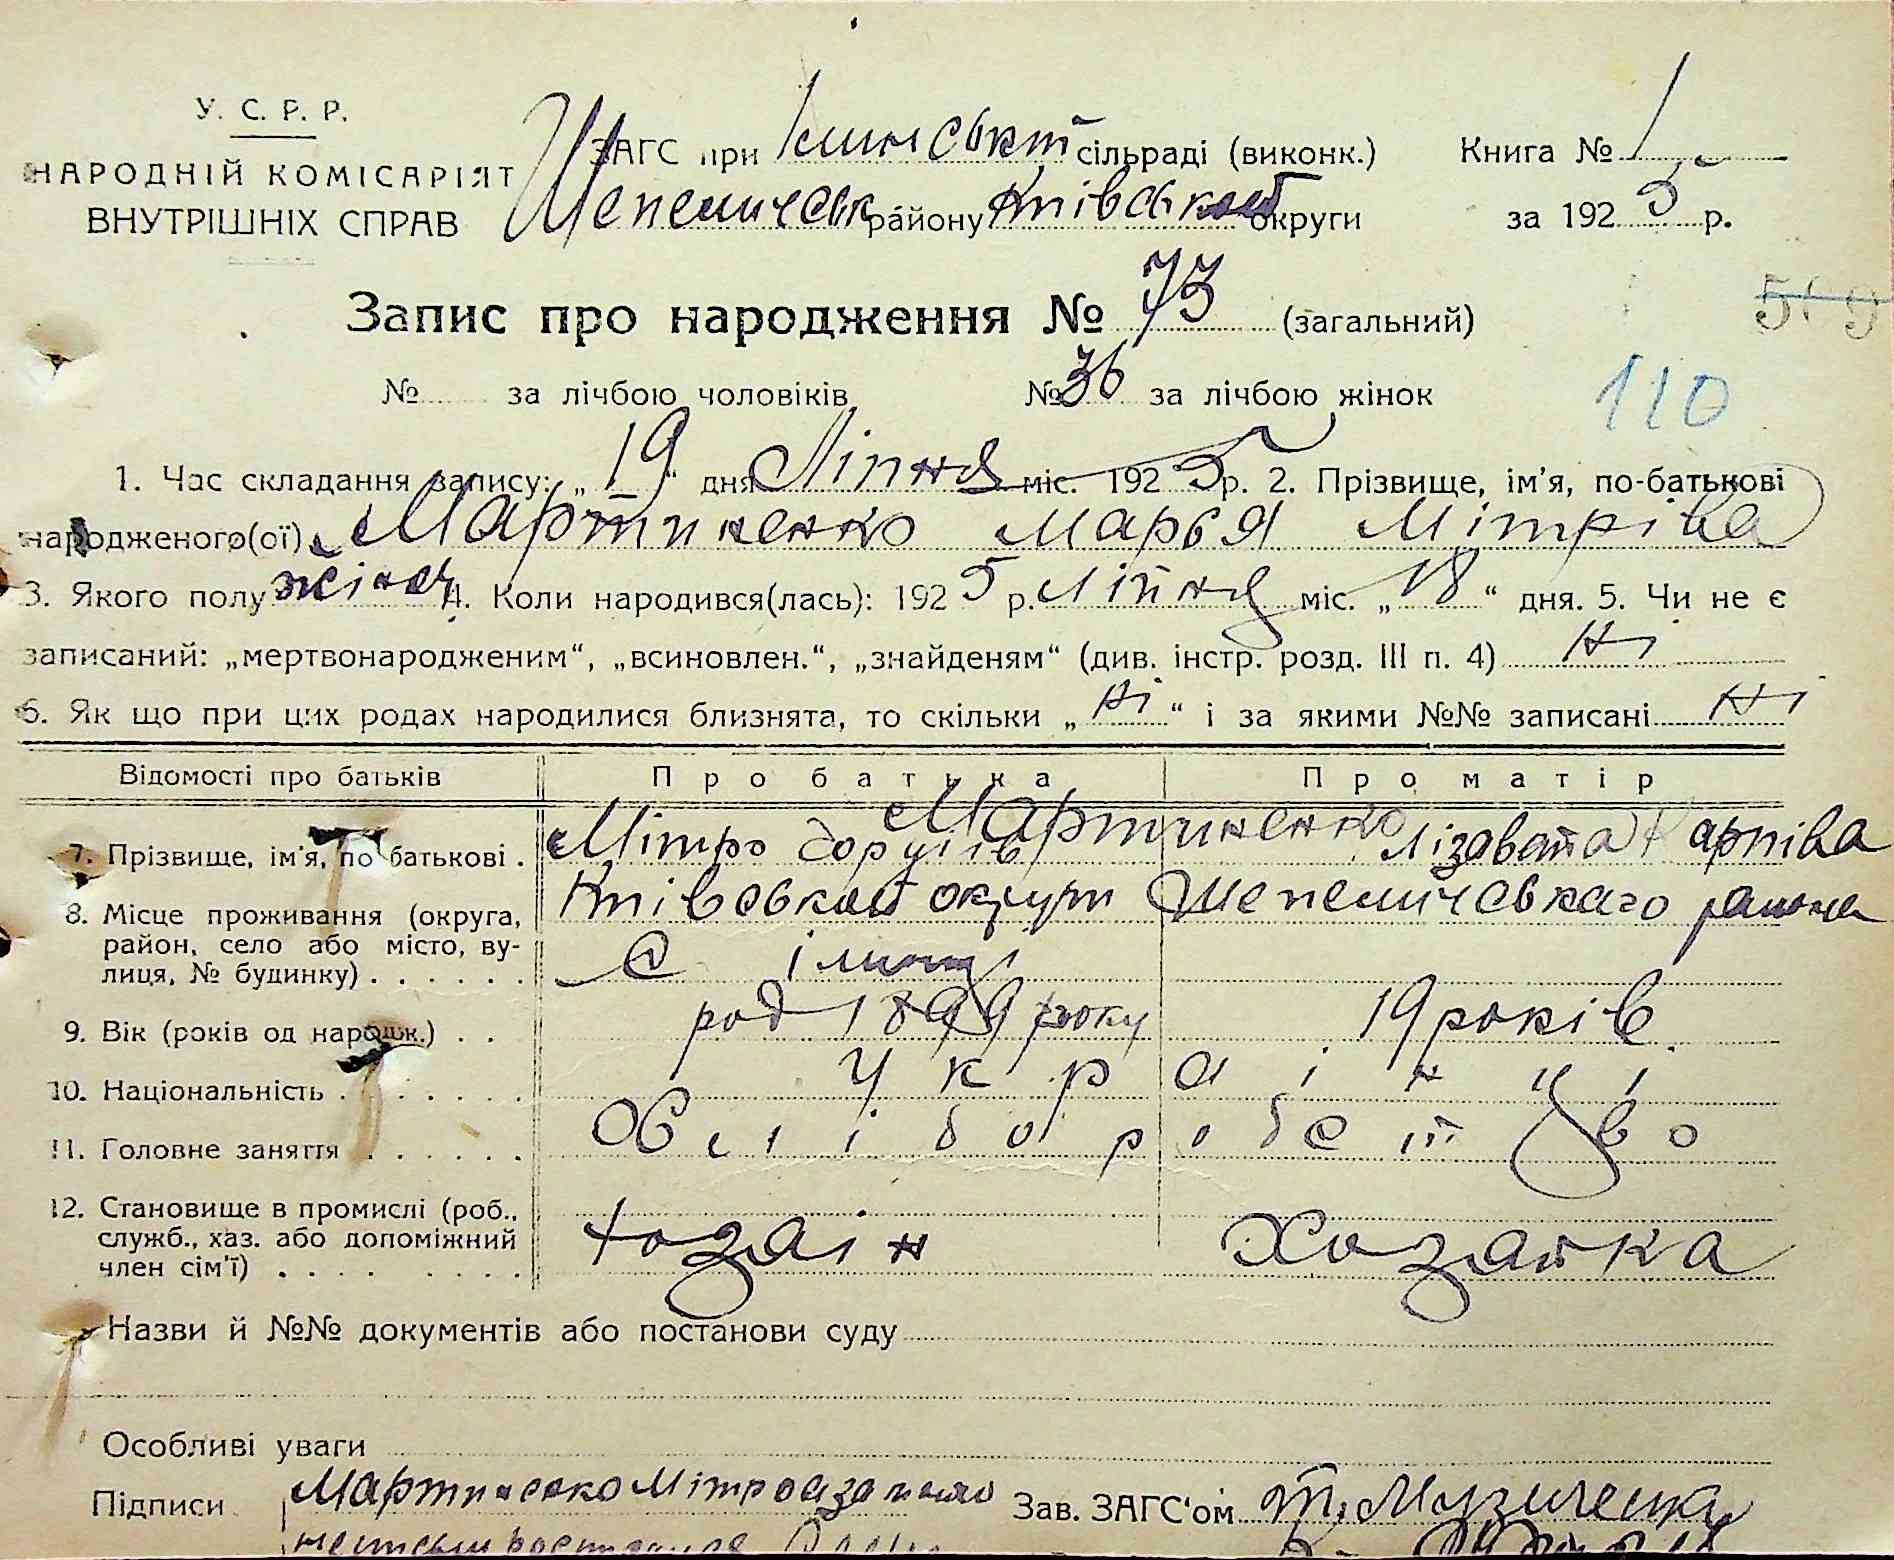 У. С. Р. Р.
НАРОДНІЙ КОМІСАРІЯТ
ВНУТРІШНІХ СПРАВ
ЗАГС при сільраді (виконк.)
Шепеличськ району Київської округи
Книга № 1
за 1925 р.
Запис про народження № 73 (загальний)
№ за лічбою чоловіків № 36 за лічбою жінок
519
110
1. Час складання запису: „19“ дня Ліпня міс. 1925 р. 2. Прізвище, ім'я, по-батькові
народженого(ої) Мартиненко Марья Мітріва
3. Якого полу жіноч 4. Коли народився(лась): 1925 р. Ліпня міс. „18“ дня. 5. Чи не є
записаний: „мертвонародженим“, „всиновлен.“, „знайденям“ (див. інстр. розд. III п. 4) Ні
6. Як що при цих родах народилися близнята, то скільки „Ні“ і за якими №№ записані Ні
Відомості про батьків Про батька Про матір
Мартиненко
7. Прізвище, ім'я, по батькові . Мітро Лізавета Карпіва
8. Місце проживання (округа, район, село або місто, вулиця, № будинку) . . . . . . Київськой округи Шепеличського района
С
9. Вік (років од народж.) . . род 1899 року 19 років
10. Національність . . . . . . . Українці
11. Головне заняття . . . . . . Хліборобство
12. Становище в промислі (роб., служб., хаз. або допоміжний член сім'ї) . . . . . . . . Хозаін Хозайка
Назви й №№ документів або постанови суду
Особливі уваги
Підписи Мартиненко Мітро Зав. ЗАГС'ом